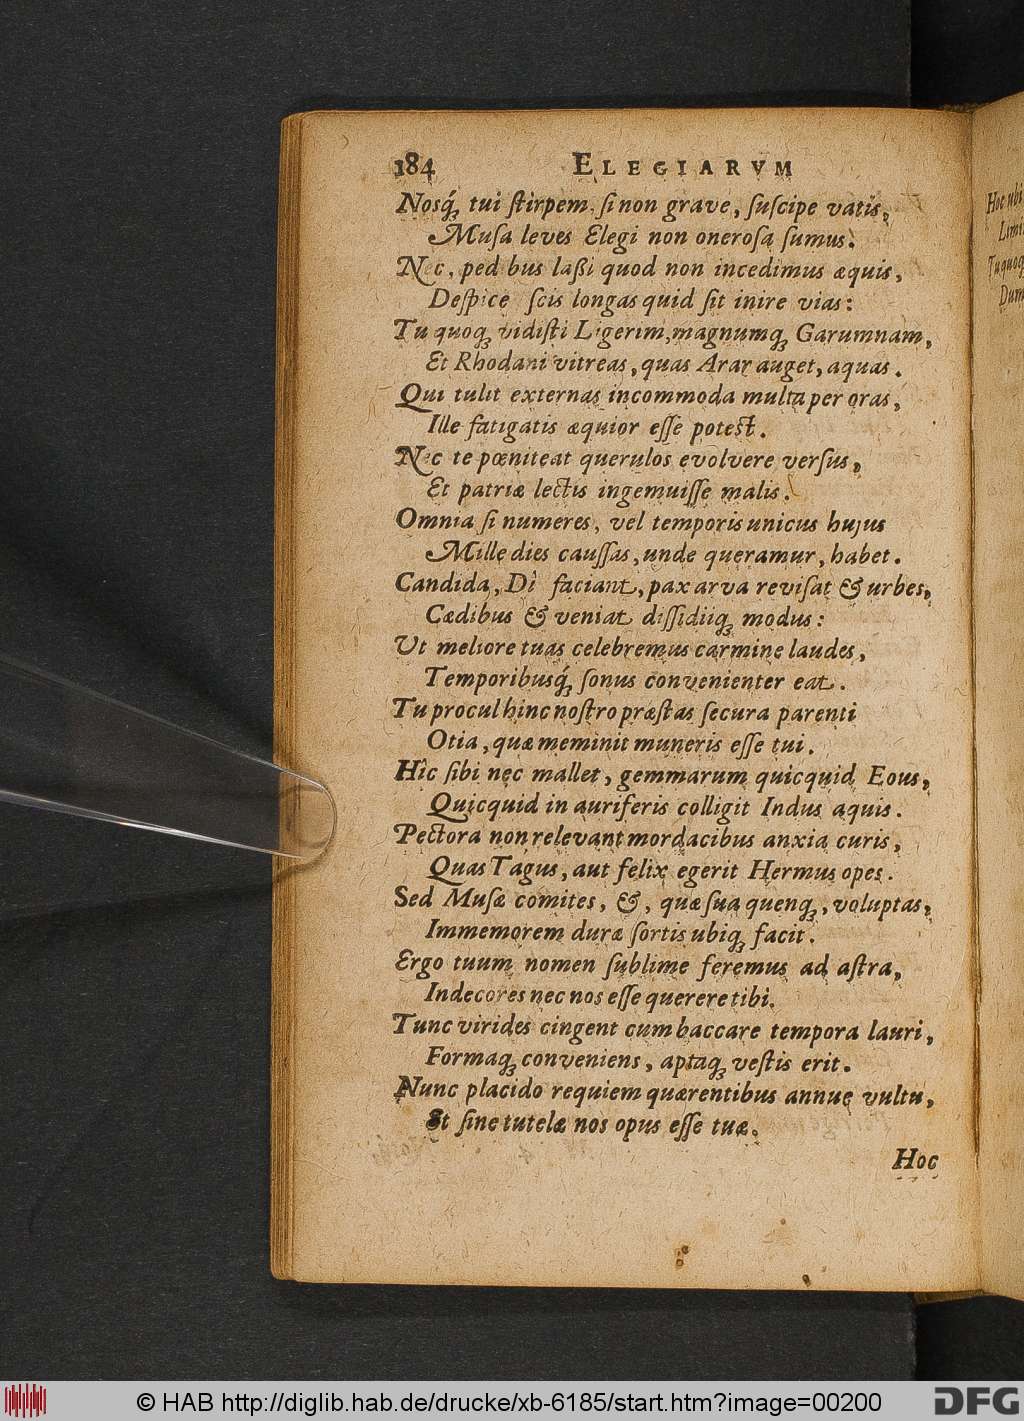 184 ELEGIARVM
Nosq́; tui ſtirpem, ſi non grave, ſuſcipe vatis,
Muſa leves Elegi non oneroſa ſumus.
Nec, ped bus laßi quod non incedimus æquis,
Deſpice ſcis longas quid ſit inire vias:
Tu quoq; vidiſti Ligerim, magnumq; Garumnam,
Et Rhodani vitreas, quas Arar auget, aquas.
Qui tulit externas incommoda multa per oras,
Ille fatigatis æquior eſſe poteſt.
Nec te pœniteat querulos evolvere verſus,
Et patriæ lectis ingemuiſſe malis.
Omnia ſi numeres, vel temporis unicus hujus
Mille dies cauſſas, unde queramur, habet.
Candida, Dî faciant, pax arva reviſat & urbes,
Cædibus & veniat diſſidiiq; modus:
Ut meliore tuas celebremus carmine laudes,
Temporibusq́; ſonus convenienter eat.
Tu procul hinc noſtro præſtas ſecura parenti
Otia, quæ meminit muneris eſſe tui.
Hîc ſibi nec mallet, gemmarum quicquid Eous,
Quicquid in auriferis colligit Indus aquis.
Pectora non relevant mordacibus anxia curis,
Quas Tagus, aut felix egerit Hermus opes.
Sed Muſæ comites, &, quæ ſua quenq;, voluptas,
Immemorem duræ ſortis ubiq; facit.
Ergo tuum nomen ſublime feremus ad aſtra,
Indecores nec nos eſſe querere tibi.
Tunc virides cingent cum baccare tempora lauri,
Formaq; conveniens, aptaq; veſtis erit.
Nunc placido requiem quærentibus annue vultu,
Et ſine tutelæ nos opus eſſe tuæ.
Hoc
Hoc ubi
Tu quoq
Dum
© HAB http://diglib.hab.de/drucke/xb-6185/start.htm?image=00200
DFG